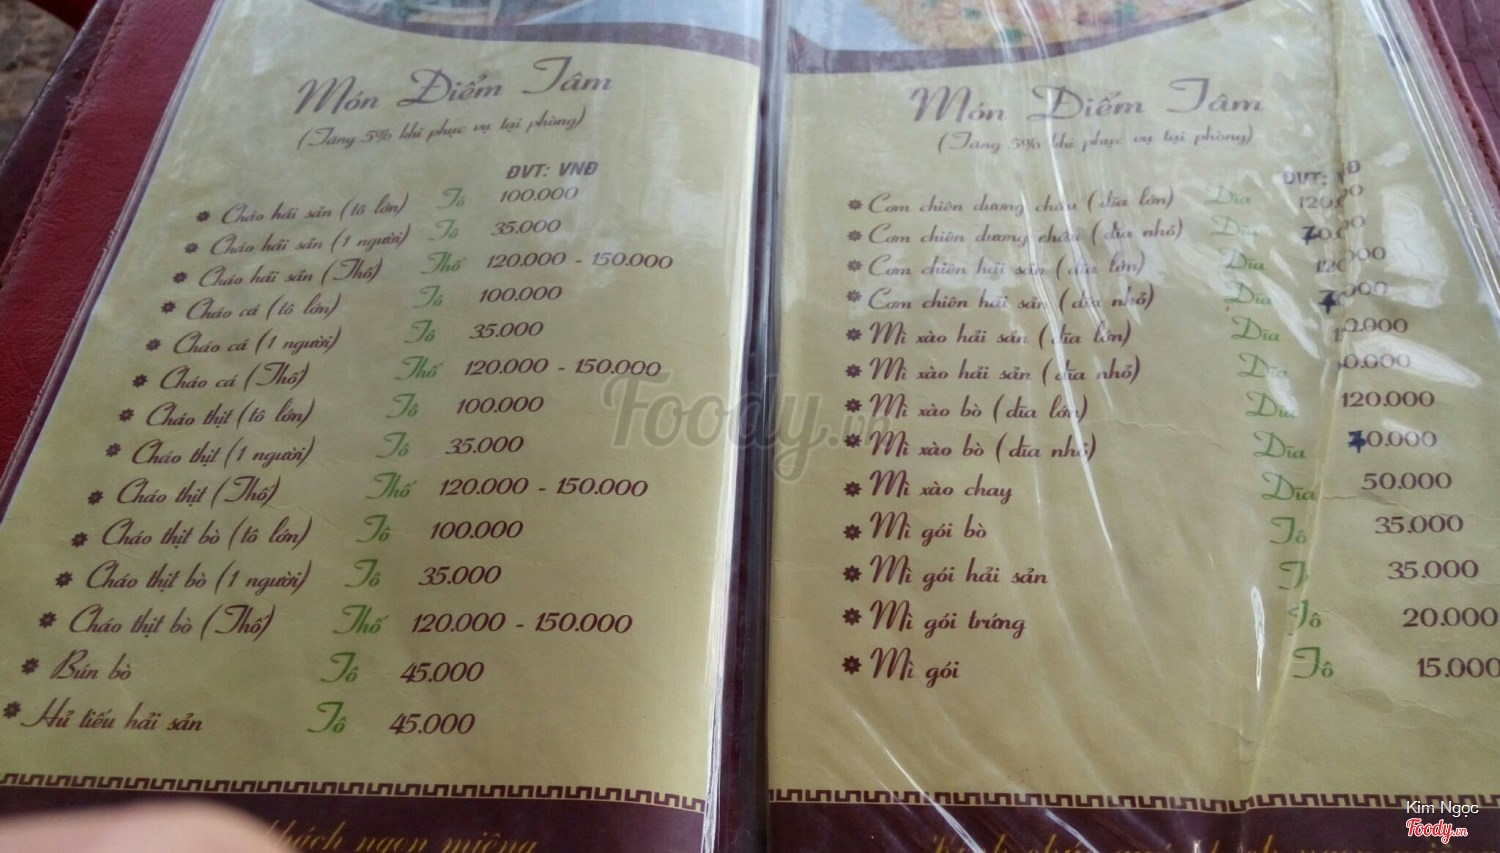 Món Điểm Tâm
(Tăng 5% khi phục vụ tại phòng)
ĐVT: VNĐ
Cháo hải sản (tô lớn) Tô 100.000
Cháo hải sản (1 người) Tô 35.000
Cháo hải sản (Thố) Thố 120.000 - 150.000
Cháo cá (tô lớn) Tô 100.000
Cháo cá (1 người) Tô 35.000
Cháo cá (Thố) Thố 120.000 - 150.000
Cháo thịt (tô lớn) Tô 100.000
Cháo thịt (1 người) Tô 35.000
Cháo thịt (Thố) Thố 120.000 - 150.000
Cháo thịt bò (tô lớn) Tô 100.000
Cháo thịt bò (1 người) Tô 35.000
Cháo thịt bò (Thố) Thố 120.000 - 150.000
Bún bò Tô 45.000
Hủ tiếu hải sản Tô 45.000
khách ngon miệng
Món Điểm Tâm
(Tăng 5% khi phục vụ tại phòng)
ĐVT:
Cơm chiên dương châu (dĩa lớn) Dĩa
Cơm chiên dương châu (dĩa nhỏ) Dĩa
Cơm chiên hải sản (dĩa lớn) Dĩa
Cơm chiên hải sản (dĩa nhỏ) Dĩa
Mì xào hải sản (dĩa lớn) Dĩa
Mì xào hải sản (dĩa nhỏ) Dĩa
Mì xào bò (dĩa lớn) Dĩa 120.000
Mì xào bò (dĩa nhỏ) Dĩa 70.000
Mì xào chay Dĩa 50.000
Mì gói bò Tô 35.000
Mì gói hải sản 35.000
Mì gói trứng Tô 20.000
Mì gói Tô 15.000
Foody.vn
Kim Ngọc
Foody.vn